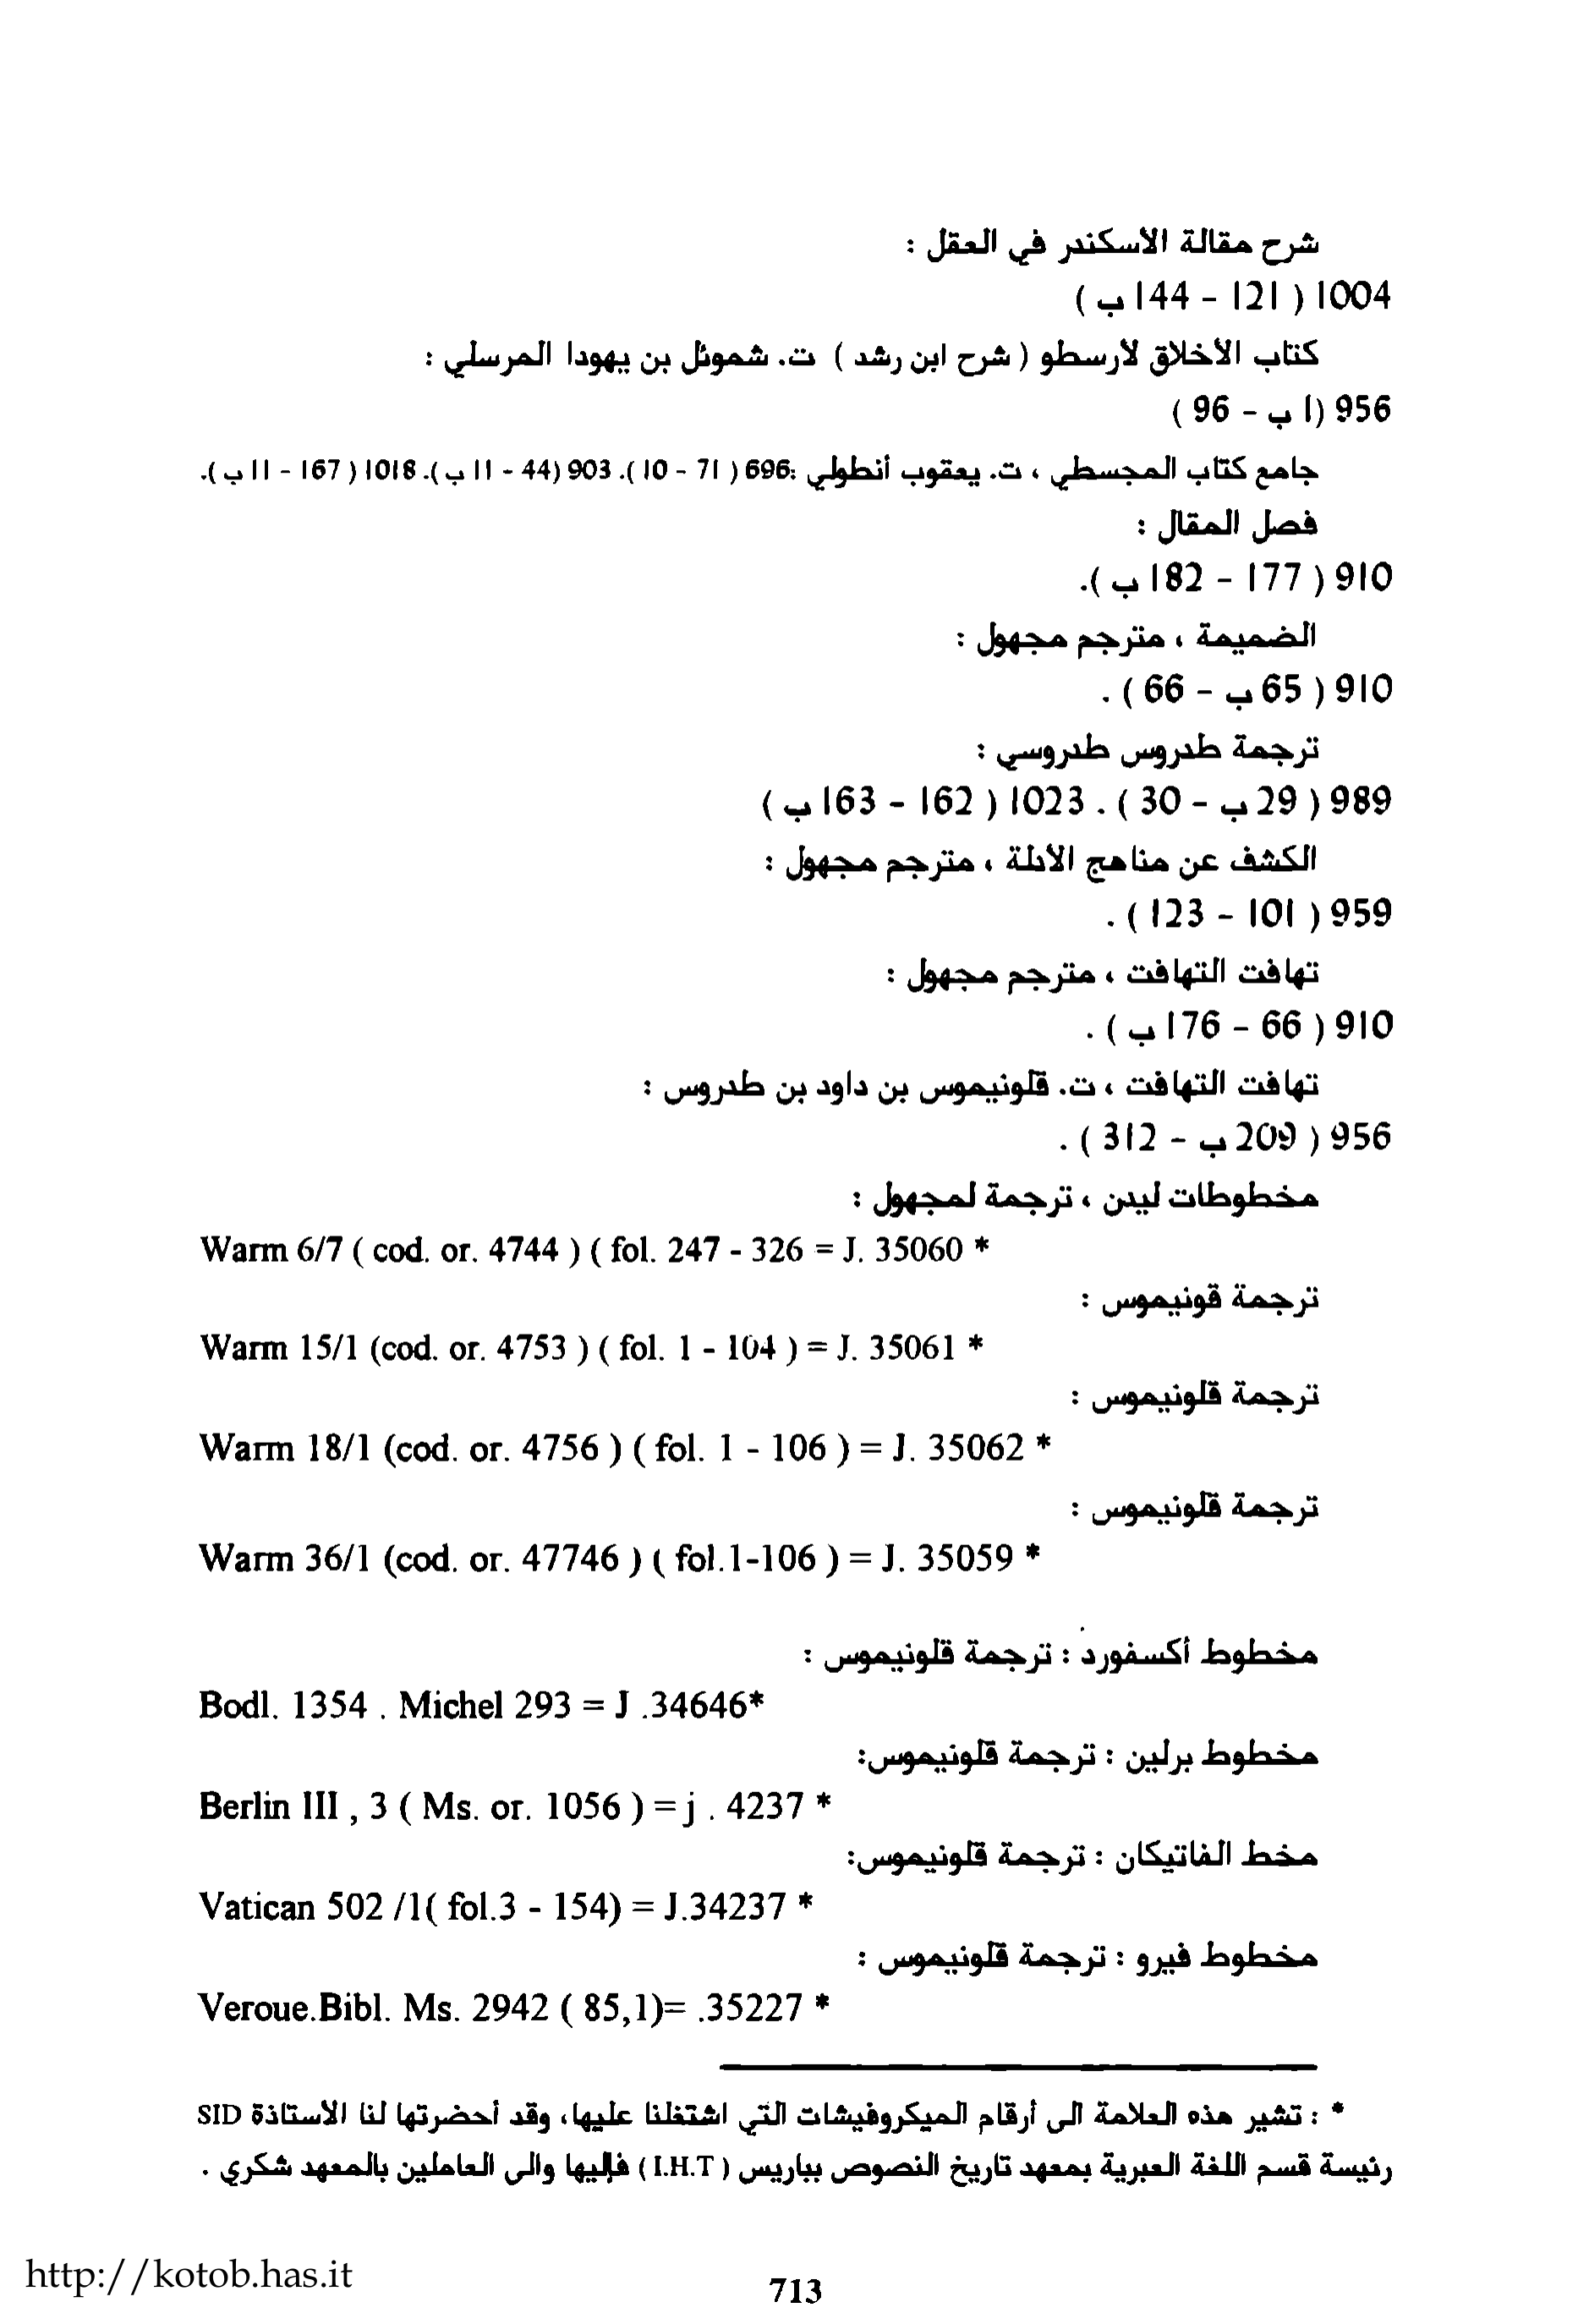 شرح مقالة الاسكندر في العقل :
1004 ( 121 - 144 ب )
كتاب الأخلاق لأرسطو ( شرح ابن رشد ) ت. شموئل بن يهودا المرسلي :
956 (1 ب - 96 )
جامع كتاب المجسطي ، ت. يعقوب أنطولي :696 ( 71 - 10 ). 903 (44 - 11 ب ). 1018 ( 167 - 11 ب ).
فصل المقال :
910 ( 177 - 182 ب ).
الضميمة ، مترجم مجهول :
910 ( 65 ب - 66 ) .
ترجمة طدروس طدروسي :
989 ( 29 ب - 30 ) . 1023 ( 162 - 163 ب )
الكشف عن مناهج الادلة ، مترجم مجهول :
959 ( 101 - 123 ) .
تهافت التهافت ، مترجم مجهول :
910 ( 66 - 176 ب ) .
تهافت التهافت ، ت. قلونيموس بن داود بن طدروس :
956 ( 209 ب - 312 ) .
مخطوطات ليدن ، ترجمة لمجهول :
Warm 6/7 ( cod. or. 4744 ) ( fol. 247 - 326 = J. 35060 *
ترجمة قونيموس :
Warm 15/1 (cod. or. 4753 ) ( fol. 1 - 104 ) = J. 35061 *
ترجمة قلونيموس :
Warm 18/1 (cod. or. 4756 ) ( fol. 1 - 106 ) = J. 35062 *
ترجمة قلونيموس :
Warm 36/1 (cod. or. 47746 ) ( fol.1-106 ) = J. 35059 *
مخطوط أكسفورد : ترجمة قلونيموس :
Bodl. 1354 . Michel 293 = J .34646*
مخطوط برلين : ترجمة قلونيموس:
Berlin III , 3 ( Ms. or. 1056 ) = j . 4237 *
مخط الفاتيكان : ترجمة قلونيموس:
Vatican 502 /1( fol.3 - 154) = J.34237 *
مخطوط فيرو : ترجمة قلونيموس :
Veroue.Bibl. Ms. 2942 ( 85,1)= .35227 *
* : تشير هذه العلامة الى أرقام الميكروفيشات التي اشتغلنا عليها، وقد أحضرتها لنا الاستاذة SID
رئيسة قسم اللغة العبرية بمعهد تاريخ النصوص بباريس ( I.H.T ) فإليها والى العاملين بالمعهد شكري .
http://kotob.has.it
713